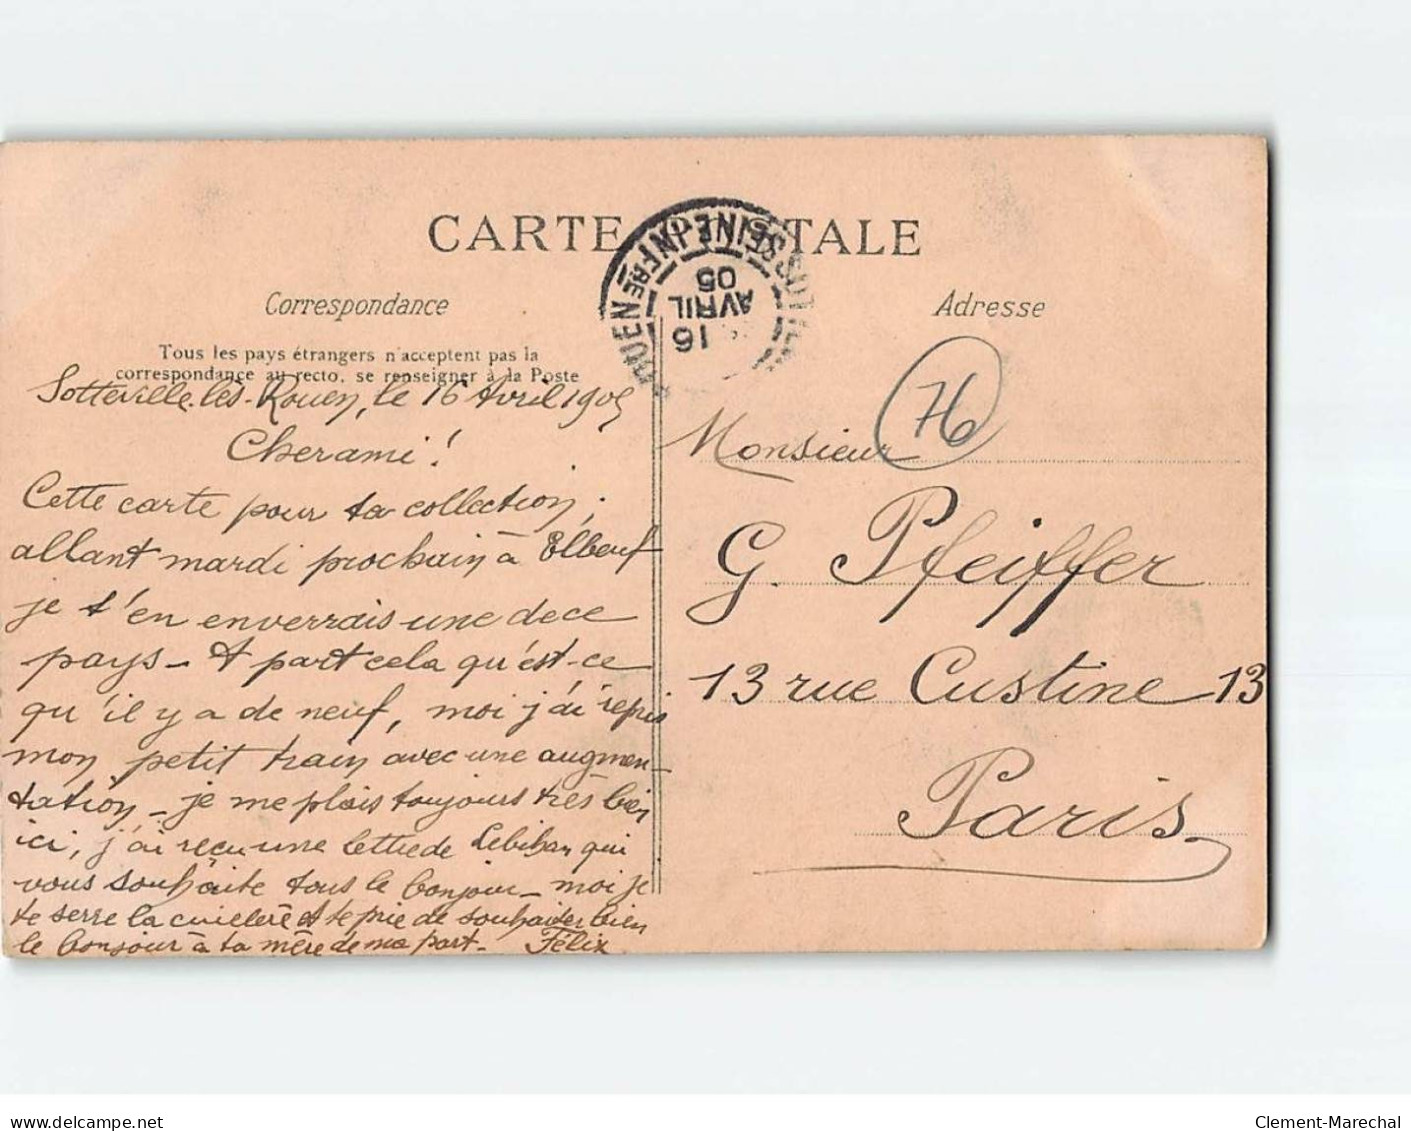 CARTE POSTALE
SOTTEVILLE-LES-ROUEN
SEINE-INFRE
16
AVRIL
05
Correspondance
Tous les pays étrangers n'acceptent pas la
correspondance au recto. se renseigner à la Poste
Sotteville-lès-Rouen, le 16 Avril 1905
Cher ami!
Cette carte pour ta collection,
allant mardi prochain à Elbeuf
je t'en enverrais une de ce
pays - A part cela qu'est-ce
qu'il y a de neuf, moi j'ai repris
mon petit train avec une augmen-
tation - je me plais toujours très bien
ici, j'ai reçu une lettre de Lebihan qui
vous souhaite tous le bonjour - moi je
te serre la cuillère et te prie de souhaiter bien
le bonjour à ta mère de ma part - Félix
Adresse
76
Monsieur
G. Pfeiffer
13 rue Custine 13
Paris
www.delcampe.net
Clement-Marechal